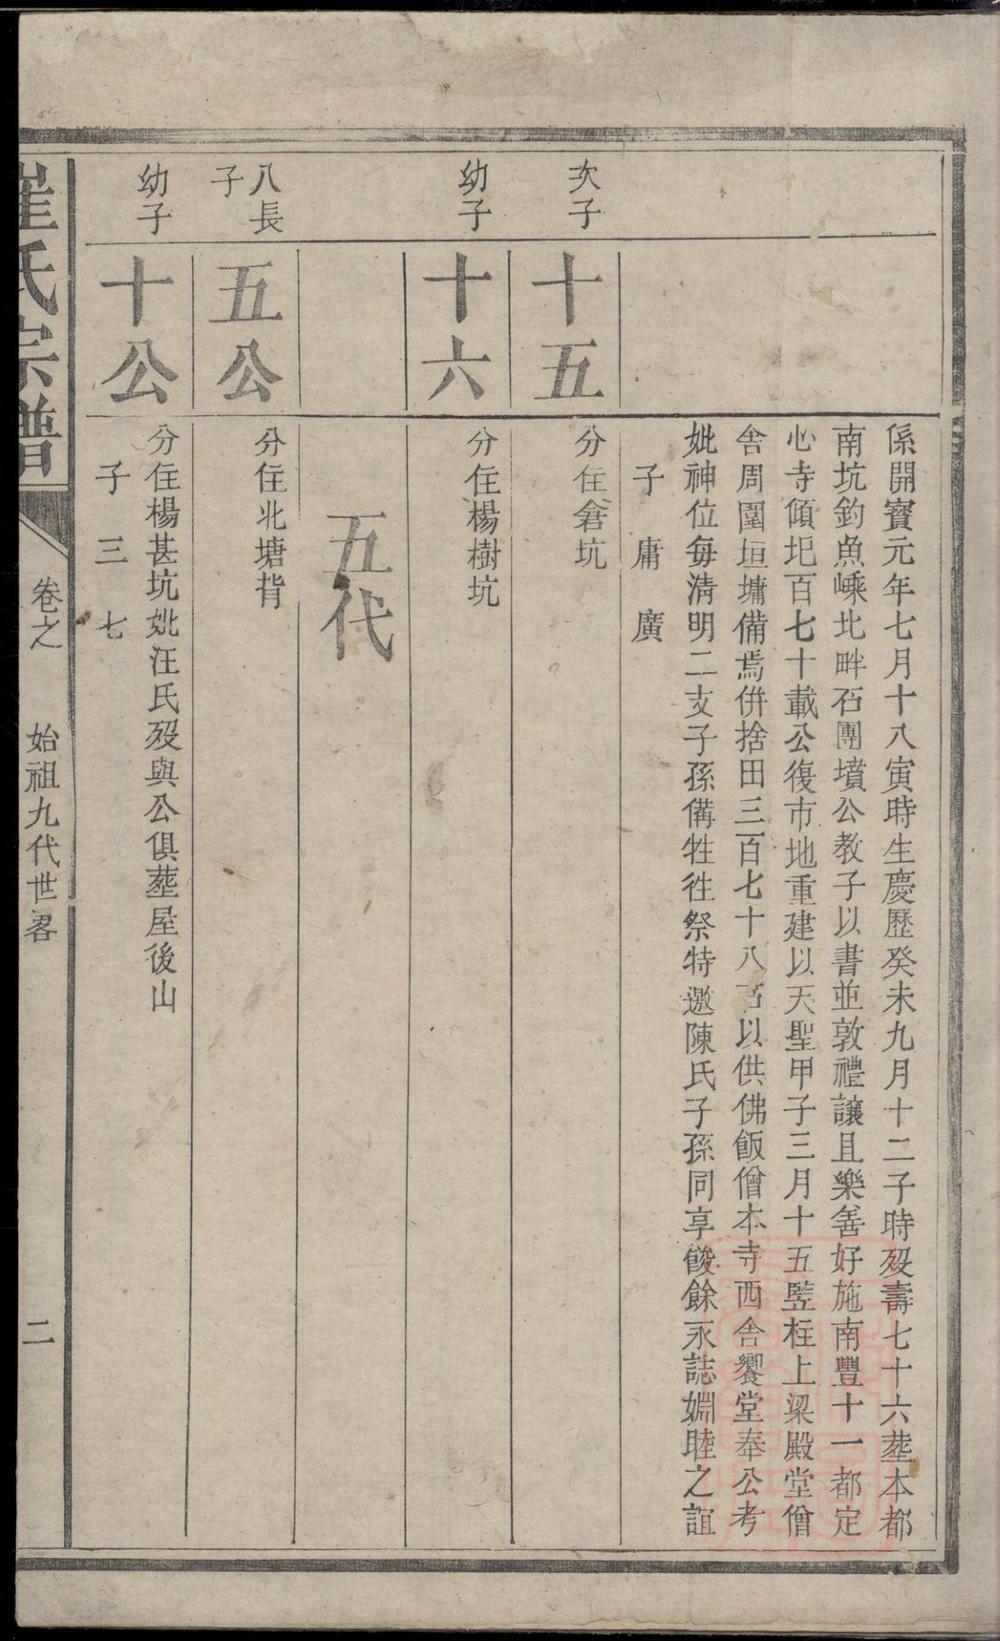 係開寳元年七月十八寅時生慶歷癸未九月十二子時殁壽七十六塟本都
南坑釣魚嵊北畔石團墳公教子以書並敦禮讓且樂善好施南豐十一都定
心寺傾圯百七十載公復市地重建以天聖甲子三月十五竪柱上梁殿堂僧
舍周圍垣墉備焉併捨田三百七十八石以供佛飯僧本寺西舍饗堂奉公考
妣神位每清明二支子孫備牲徃祭特邀陳氏子孫同享餕餘永誌婣睦之誼
子 庸 廣
次子
十五
分住倉坑
幼子
十六
分住楊樹坑
五代
八長子
五公
分住北塘背
幼子
十公
分住楊甚坑妣汪氏殁與公俱塟屋後山
子 三 七
崔氏宗譜
卷之
始祖九代世畧
二